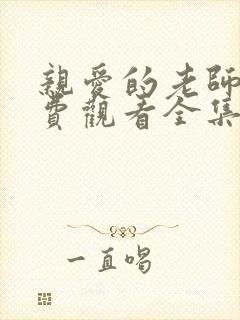 親愛的老師
費觀看全集
一直唱